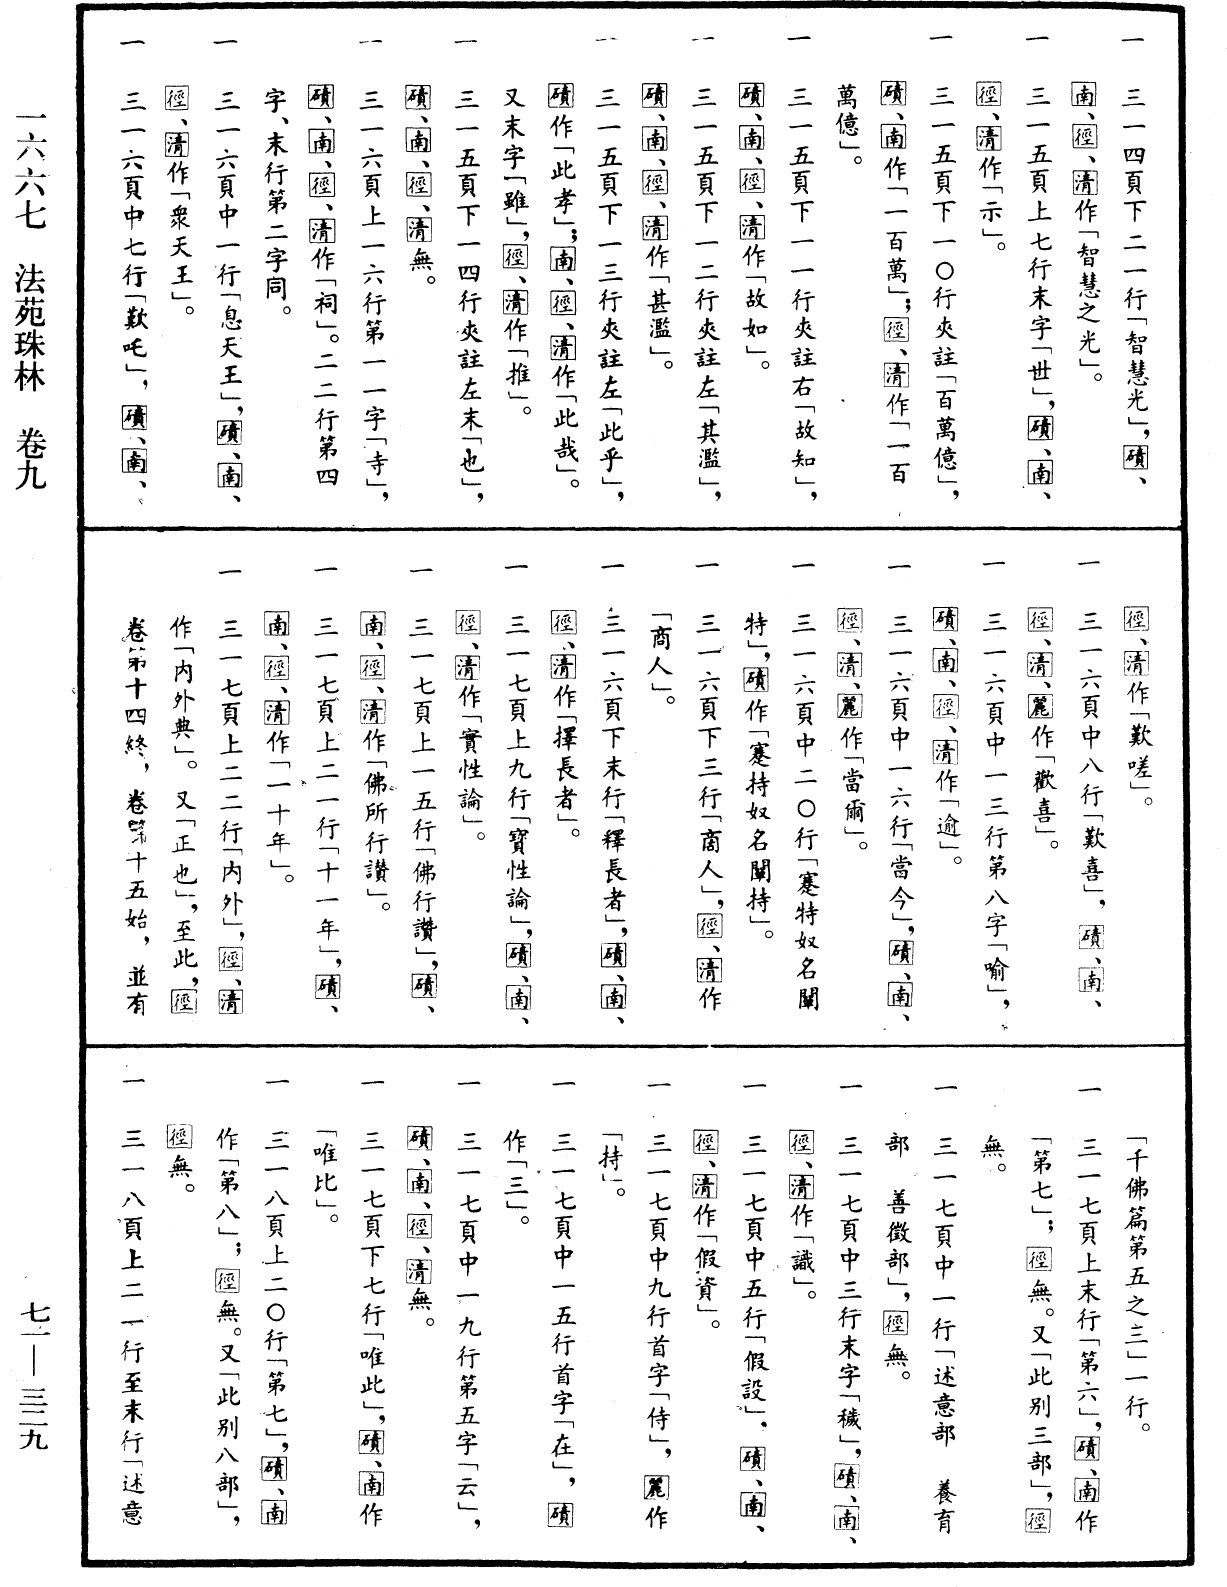 一六六七　法苑珠林　卷九
一　三一四頁下二一行「智慧光」，磧、
南、徑、清作「智慧之光」。
一　三一五頁上七行末字「世」，磧、南、
徑、清作「示」。
一　三一五頁下一〇行夾註「百萬億」，
磧、南作「一百萬」；徑、清作「一百
萬億」。
一　三一五頁下一一行夾註右「故知」，
磧、南、徑、清作「故如」。
一　三一五頁下一二行夾註左「其濫」，
磧、南、徑、清作「甚濫」。
一　三一五頁下一三行夾註左「此乎」，
磧作「此孝」；南、徑、清作「此哉」。
又末字「雖」，徑、清作「推」。
一　三一五頁下一四行夾註左末「也」，
磧、南、徑、清無。
一　三一六頁上一六行第一一字「寺」，
磧、南、徑、清作「祠」。二二行第四
字、末行第二字同。
一　三一六頁中一行「息天王」，磧、南、
徑、清作「眾天王」。
一　三一六頁中七行「歎吒」，磧、南、
徑、清作「歎嗟」。
一　三一六頁中八行「歎喜」，磧、南、
徑、清、麗作「歡喜」。
一　三一六頁中一三行第八字「喻」，
磧、南、徑、清作「逾」。
一　三一六頁中一六行「當今」，磧、南、
徑、清、麗作「當爾」。
一　三一六頁中二〇行「蹇特奴名闡
特」，磧作「蹇持奴名闡持」。
一　三一六頁下三行「啇人」，徑、清作
「商人」。
一　三一六頁下末行「釋長者」，磧、南、
徑、清作「擇長者」。
一　三一七頁上九行「寶性論」，磧、南、
徑、清作「實性論」。
一　三一七頁上一五行「佛行讚」，磧、
南、徑、清作「佛所行讚」。
一　三一七頁上二一行「十一年」，磧、
南、徑、清作「一十年」。
一　三一七頁上二二行「內外」，徑、清
作「內外典」。又「正也」，至此，徑
卷第十四終，卷第十五始，並有
「千佛篇第五之三」一行。
一　三一七頁上末行「第六」，磧、南作
「第七」；徑無。又「此別三部」，徑
無。
一　三一七頁中一行「述意部　養育
部　善徵部」，徑無。
一　三一七頁中三行末字「穢」，磧、南、
徑、清作「識」。
一　三一七頁中五行「假設」，磧、南、
徑、清作「假資」。
一　三一七頁中九行首字「侍」，麗作
「持」。
一　三一七頁中一五行首字「在」，磧
作「三」。
一　三一七頁中一九行第五字「云」，
磧、南、徑、清無。
一　三一七頁下七行「唯此」，磧、南作
「唯比」。
一　三一八頁上二〇行「第七」，磧、南
作「第八」；徑無。又「此別八部」，
徑無。
一　三一八頁上二一行至末行「述意
七一—三二九